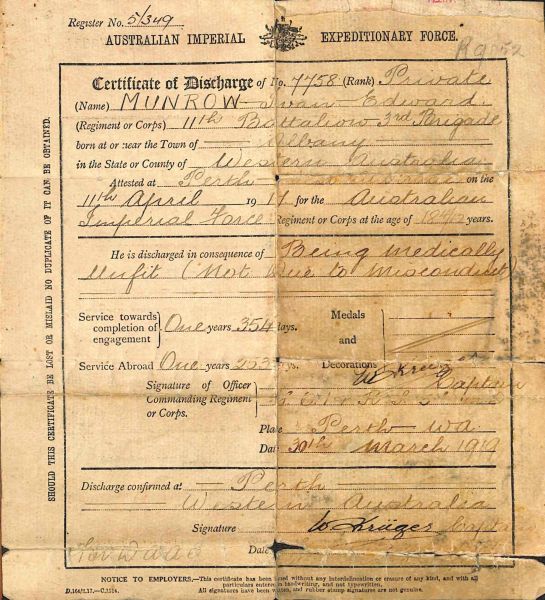 Register No. 5/349
AUSTRALIAN IMPERIAL EXPEDITIONARY FORCE.
Certificate of Discharge of No. 7758 (Rank) Private
(Name) MUNROW Ivan Edward
(Regiment or Corps) 11th Battalion 3rd Brigade
born at or near the Town of Albany
in the State or County of Western Australia
Attested at Perth on the
11th April 1917 for the Australian
Imperial Force Regiment or Corps at the age of years.
He is discharged in consequence of Being medically
Unfit (Not Due to Misconduct)
Service towards completion of engagement One years 354 days.
Medals and Decorations
Service Abroad One years 253 days.
W Kruger Captain
Signature of Officer
Commanding Regiment
or Corps.
Place Perth WA
Date 30th March 1919
Discharge confirmed at Perth
Western Australia
Signature W Kruger Captain
Date
NOTICE TO EMPLOYERS,—This certificate has been issued without any interdelineation or erasure of any kind, and with all
particulars entered in handwriting, and not typewritten.
All signatures have been written, and rubber stamp signatures are not genuine.
SHOULD THIS CERTIFICATE BE LOST OR MISLAID NO DUPLICATE OF IT CAN BE OBTAINED.